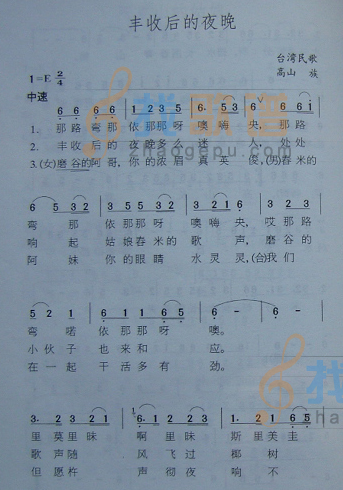 丰收后的夜晚
台湾民歌
1=E 2/4
高山 族
中速
6 6 6 6 | 1 2 3 5 | 6· 5 3 6 | 6 6 6 1 |
1. 那路弯那 依那那呀 噢嗨 央, 那路
2. 丰收后的 夜晚多么 迷 人, 处处
3.(女)磨谷的阿哥, 你的浓眉 真英 俊, (男)舂米的
找歌谱
zhaogepu.com
6 5 3 2 | 1 2 3 5 | 6· 5 3 6 |
弯 那 依那那呀 噢嗨央, 哎那路
响 起 姑娘舂米的 歌 声, 磨谷的
阿 妹 你的眼睛 水灵灵, (合)我们
5 2 1 | 6 1 2 3 1 | 6 - | 6 - |
弯 喏 依那那呀 噢。
小伙子 也来和 应。
在一起 干活多有 劲。
3· 2 3 2 | 6· 2 3 2 | 1· 6 5 6
里莫里昧 啊里昧 斯里美圭
歌声随 风飞过 椰树
但愿杵 声彻夜 响不